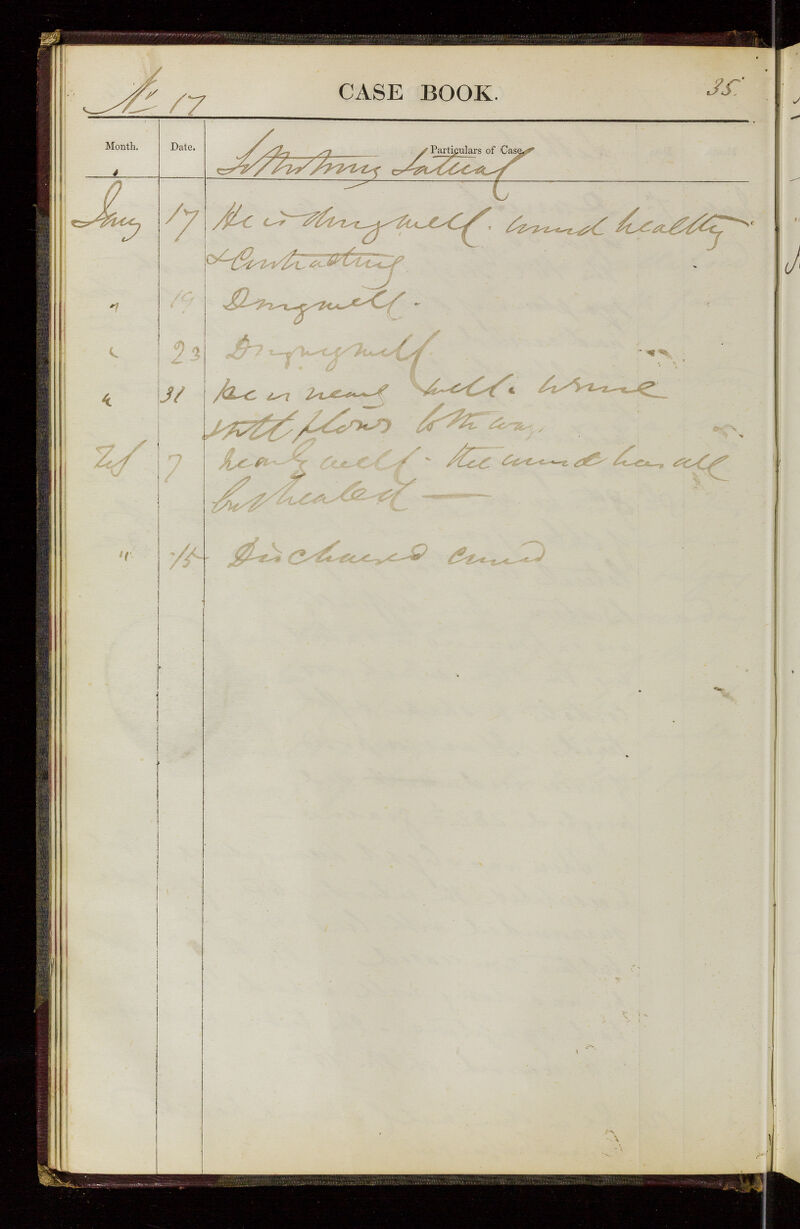 No 17 CASE BOOK. 35.
Month. Date. Particulars of Case.
Lithotomy Lateral
Jany 17 He is doing well. wound healthy
& contracting
" 19 Doing well.
" 23 Doing well
" 31 he is nearly well. Urine
still flows both ways.
Feb 7 nearly well - the wound has all
but healed —
" 15 Discharged cured